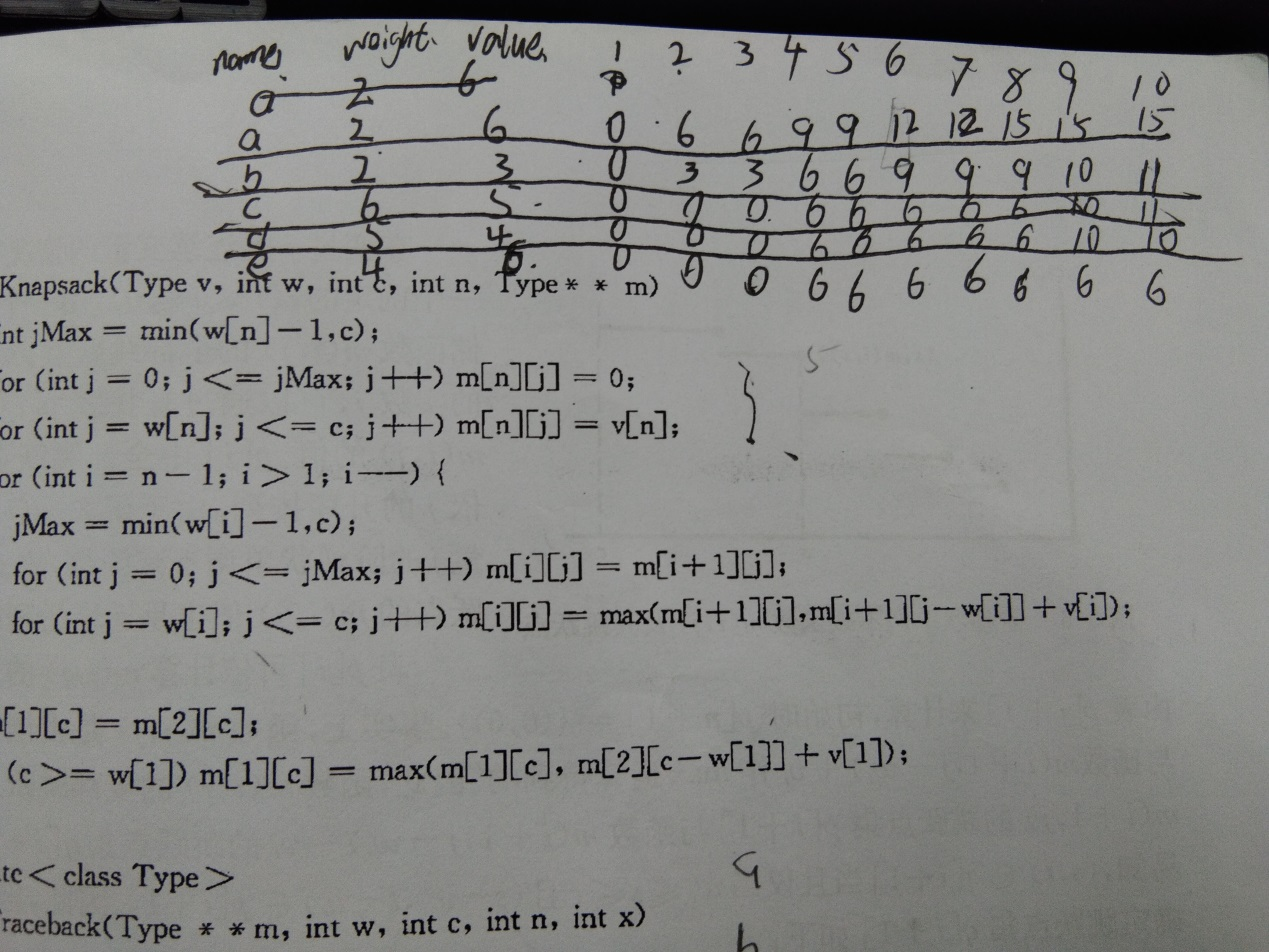 name weight. value. 1 2 3 4 5 6 7 8 9 10
a 2 6
a 2 6 0 6 6 9 9 12 12 15 15 15
b 2 3 0 3 3 6 6 9 9 9 10 11
c 6 5 0 0 0 6 6 6 6 6 10 11
d 5 4 0 0 0 6 6 6 6 6 10 10
e 4 6 0 0 0 6 6 6 6 6 6 6
Knapsack(Type v, int w, int c, int n, Type * * m)
nt jMax = min(w[n]-1,c);
or (int j = 0; j <= jMax; j++) m[n][j] = 0;
5
or (int j = w[n]; j <= c; j++) m[n][j] = v[n];
or (int i = n-1; i > 1; i--) {
jMax = min(w[i]-1,c);
for (int j = 0; j <= jMax; j++) m[i][j] = m[i+1][j];
for (int j = w[i]; j <= c; j++) m[i][j] = max(m[i+1][j],m[i+1][j-w[i]]+v[i]);
[1][c] = m[2][c];
(c >= w[1]) m[1][c] = max(m[1][c], m[2][c-w[1]]+v[1]);
te < class Type >
raceback(Type * * m, int w, int c, int n, int x)